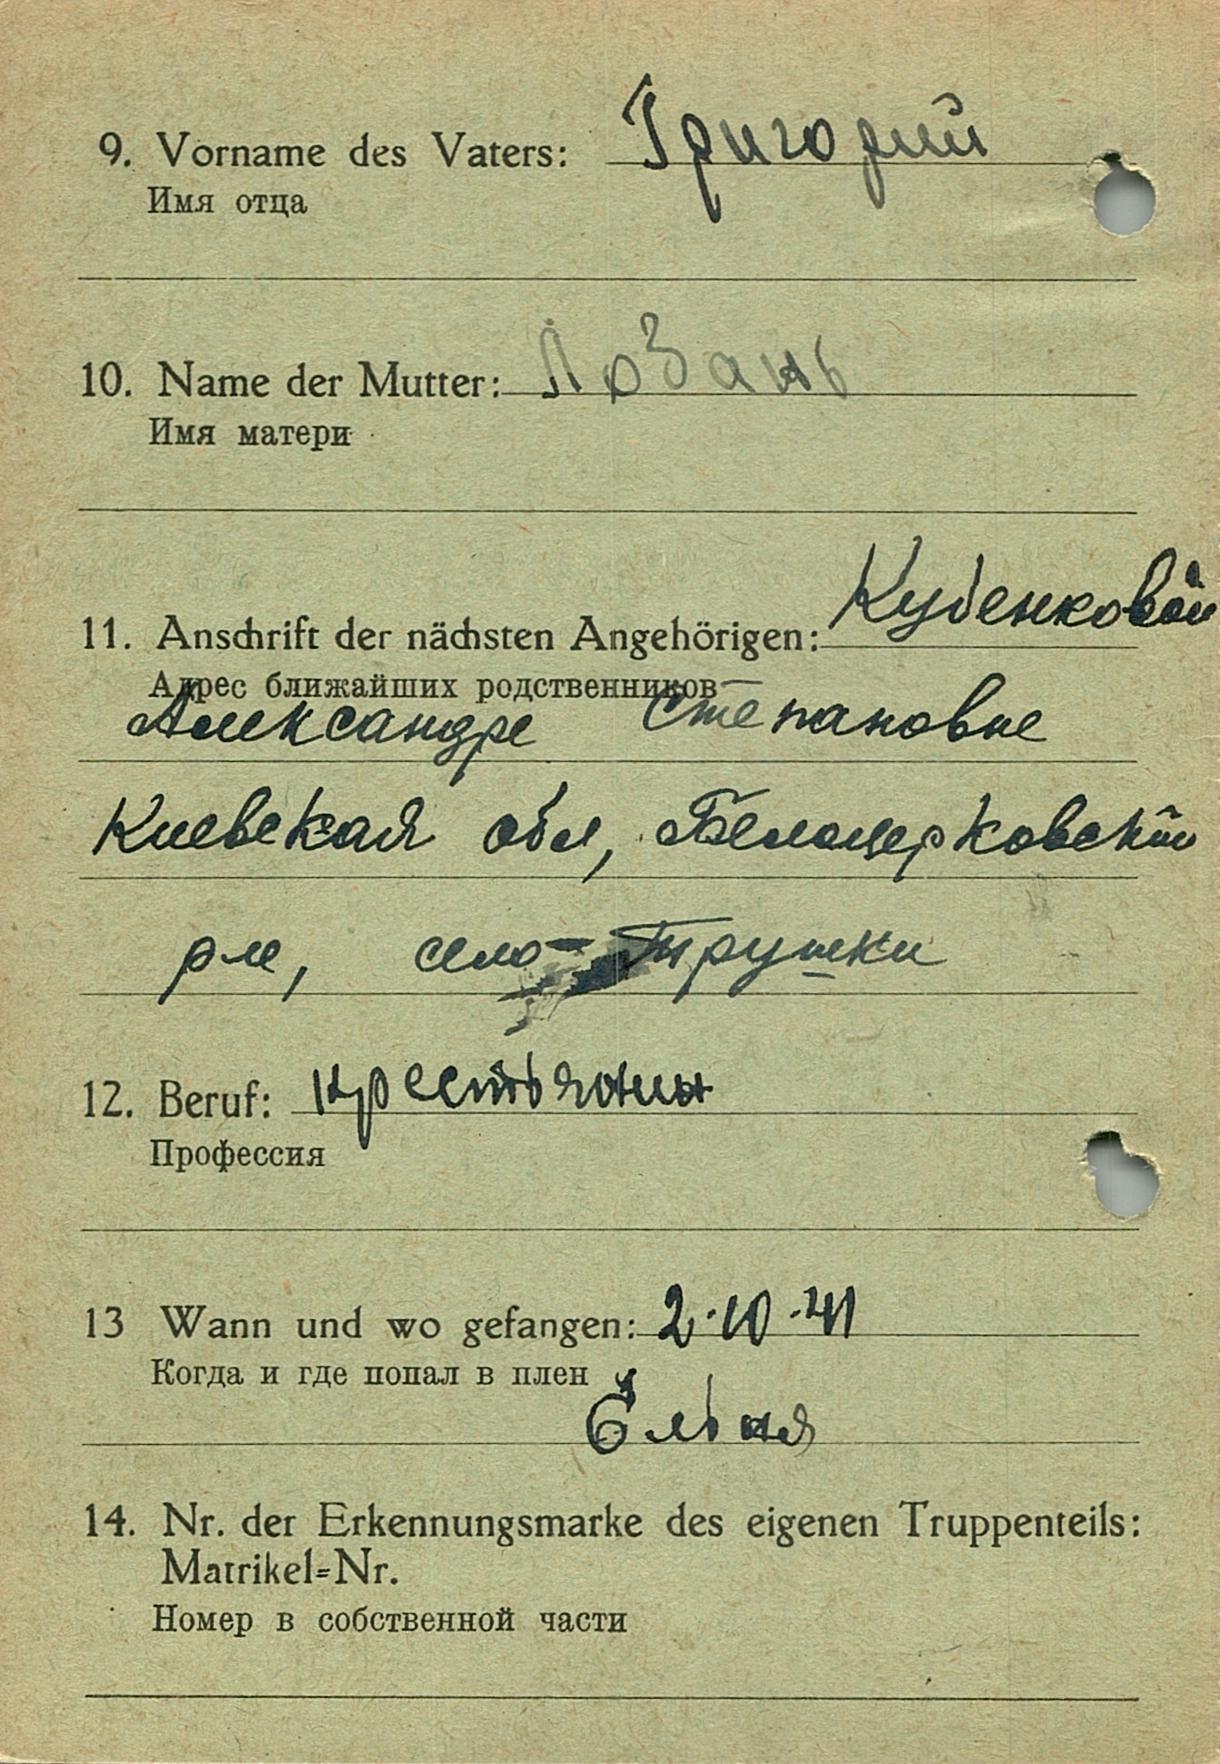 9. Vorname des Vaters: Григорий
Имя отца
10. Name der Mutter: Лозань
Имя матери
Кубенковой
11. Anschrift der nächsten Angehörigen:
Адрес ближайших родственников
Александре Степановне
Киевская обл, Белоцерковский
р-н, село Трушки
12. Beruf: крестьянин
Профессия
13 Wann und wo gefangen: 2·10·41
Когда и где попал в плен
Ельня
14. Nr. der Erkennungsmarke des eigenen Truppenteils:
Matrikel=Nr.
Номер в собственной части